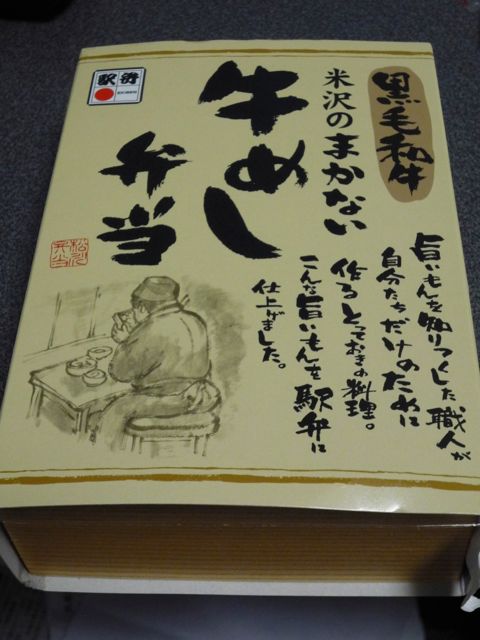 黒毛和牛
米沢のまかない
牛めし
弁当
駅弁
松川
弁当
旨いもんを知りつくした職人が
自分たちだけのために
作るとっておきの料理。
こんな旨いもんを駅弁に
仕上げました。